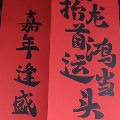 龙抬首鸿运当头
嘉年逢盛